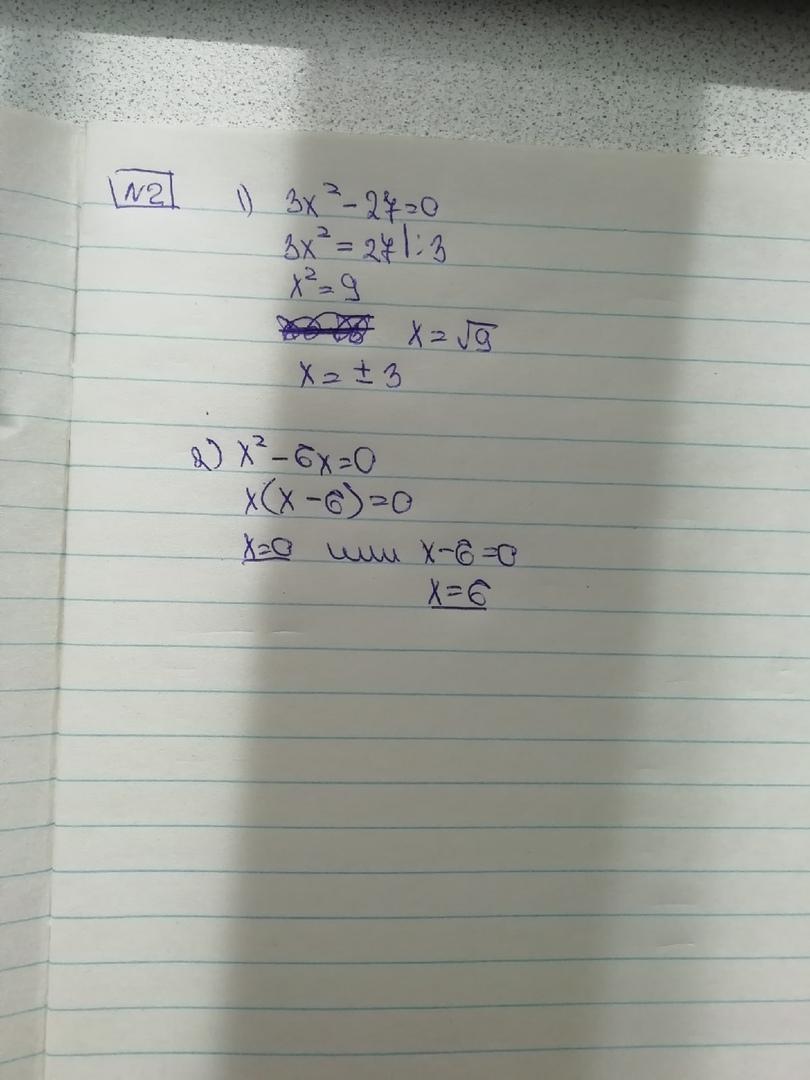 N2 1) 3x² - 27 = 0
3x² = 27 | : 3
x² = 9
x = √9
x = ± 3
2) x² - 6x = 0
x(x - 6) = 0
x = 0 или x - 6 = 0
x = 6